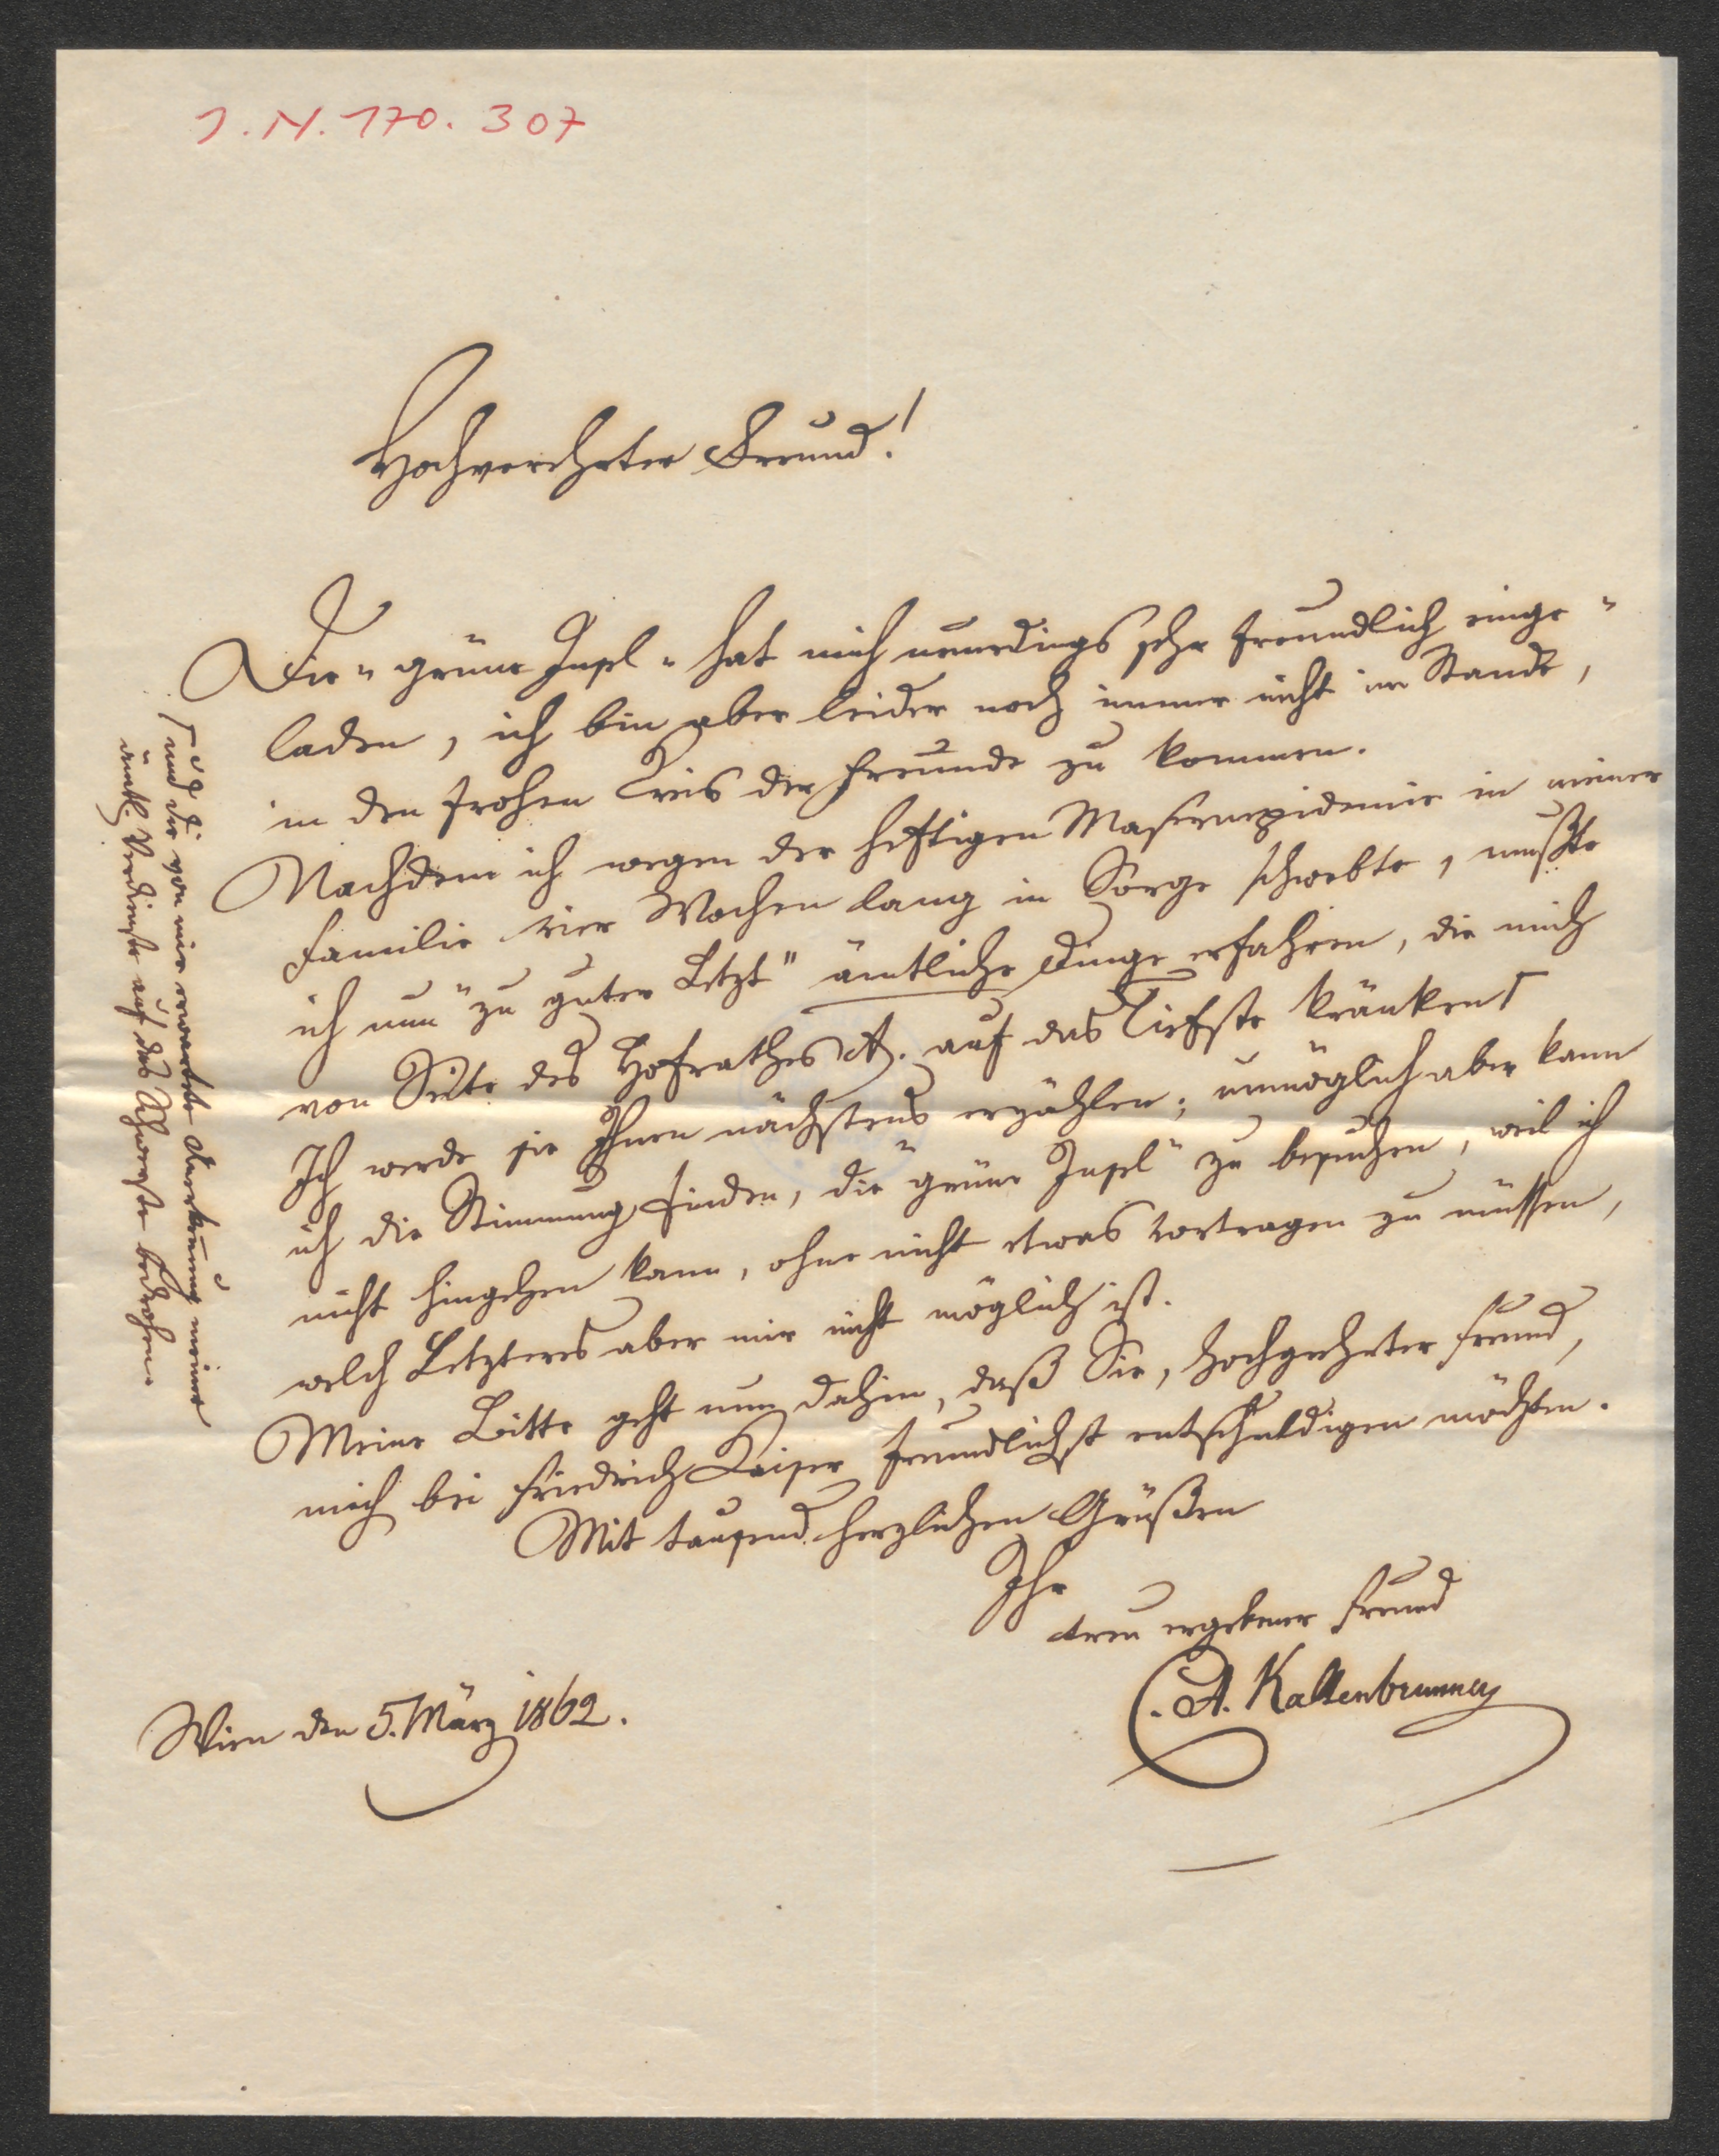 J.N. 170.307
Hochverehrter Freund!
Die "grüne Insel" hat mich neuerdings sehr freundlich einge-
laden, ich bin aber leider noch immer nicht im Stande,
in den frohen Kreis der Freunde zu kommen.
Nachdem ich wegen der heftigen Masernepidemie in meiner
Familie vier Wochen lang in Sorge schwebte, mußte
ich nun "zu guter Letzt" ämtliche Dinge erfahren, die mich
von Seite des Hofrathes A. auf das Tiefste kränken ⌈
Ich werde sie Ihnen nächstens erzählen; unmöglich aber kann
ich die Stimmung finden, die "grüne Insel" zu besuchen, weil ich
nicht hingehen kann, ohne nicht etwas vortragen zu müssen,
welch Letzteres aber mir nicht möglich ist.
Meine Bitte geht nun dahin, daß Sie, hochgeehrter Freund,
mich bei Friedrich Kaiser freundlichst entschuldigen möchten.
Mit tausend herzlichen Grüßen
Ihr
treu ergebener Freund
C. A. Kaltenbrunner
Wien den 5. März 1862.
⌈ und die von mir erwartete Anerkennung meiner
ämtl. Verdienste auf das Schwerste bedrohen.